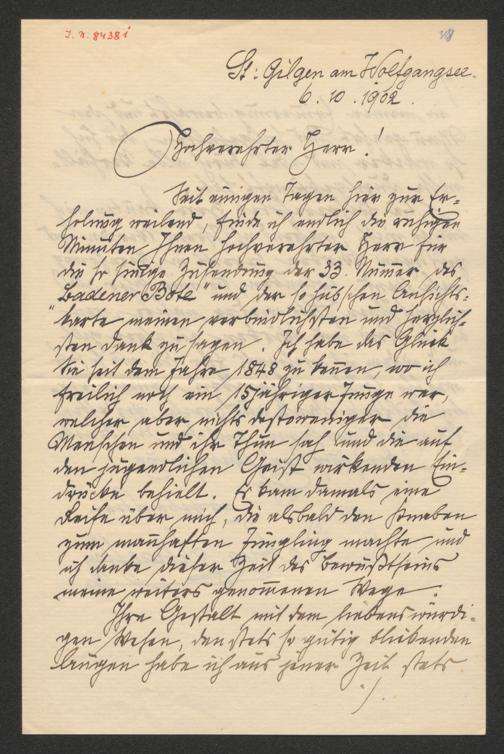 I. N. 84381
St. Gilgen am Wolfgangsee.
6. 10. 1902.
Hochverehrter Herr!
Seit einigen Tagen hier zur Er-
holung weilend, finde ich endlich die ruhigen
Minuten Ihnen hochverehrter Herr für
die so gütige Zusendung der 33. Nummer des
"Badener Bote" und der so hübschen Ansichts-
karte meinen verbindlichsten und herzlich-
sten Dank zu sagen. Ich habe das Glück
Sie seit dem Jahre 1848 zu kennen, wo ich
freilich noch ein 15jähriger Junge war,
welcher aber nichts destoweniger die
Menschen und ihr Thun sah und die auf
den jugendlichen Geist wirkenden Ein-
drücke behielt. Es kam damals eine
Reife über mich, die alsbald den Knaben
zum mannhaften Jüngling machte und
ich danke dieser Zeit des Bewußtseins
meine weiters genommenen Wege.
Ihre Gestalt mit dem liebenswürdi-
gen Wesen, den stets so gütig blickenden
Augen habe ich aus jener Zeit stets
./.